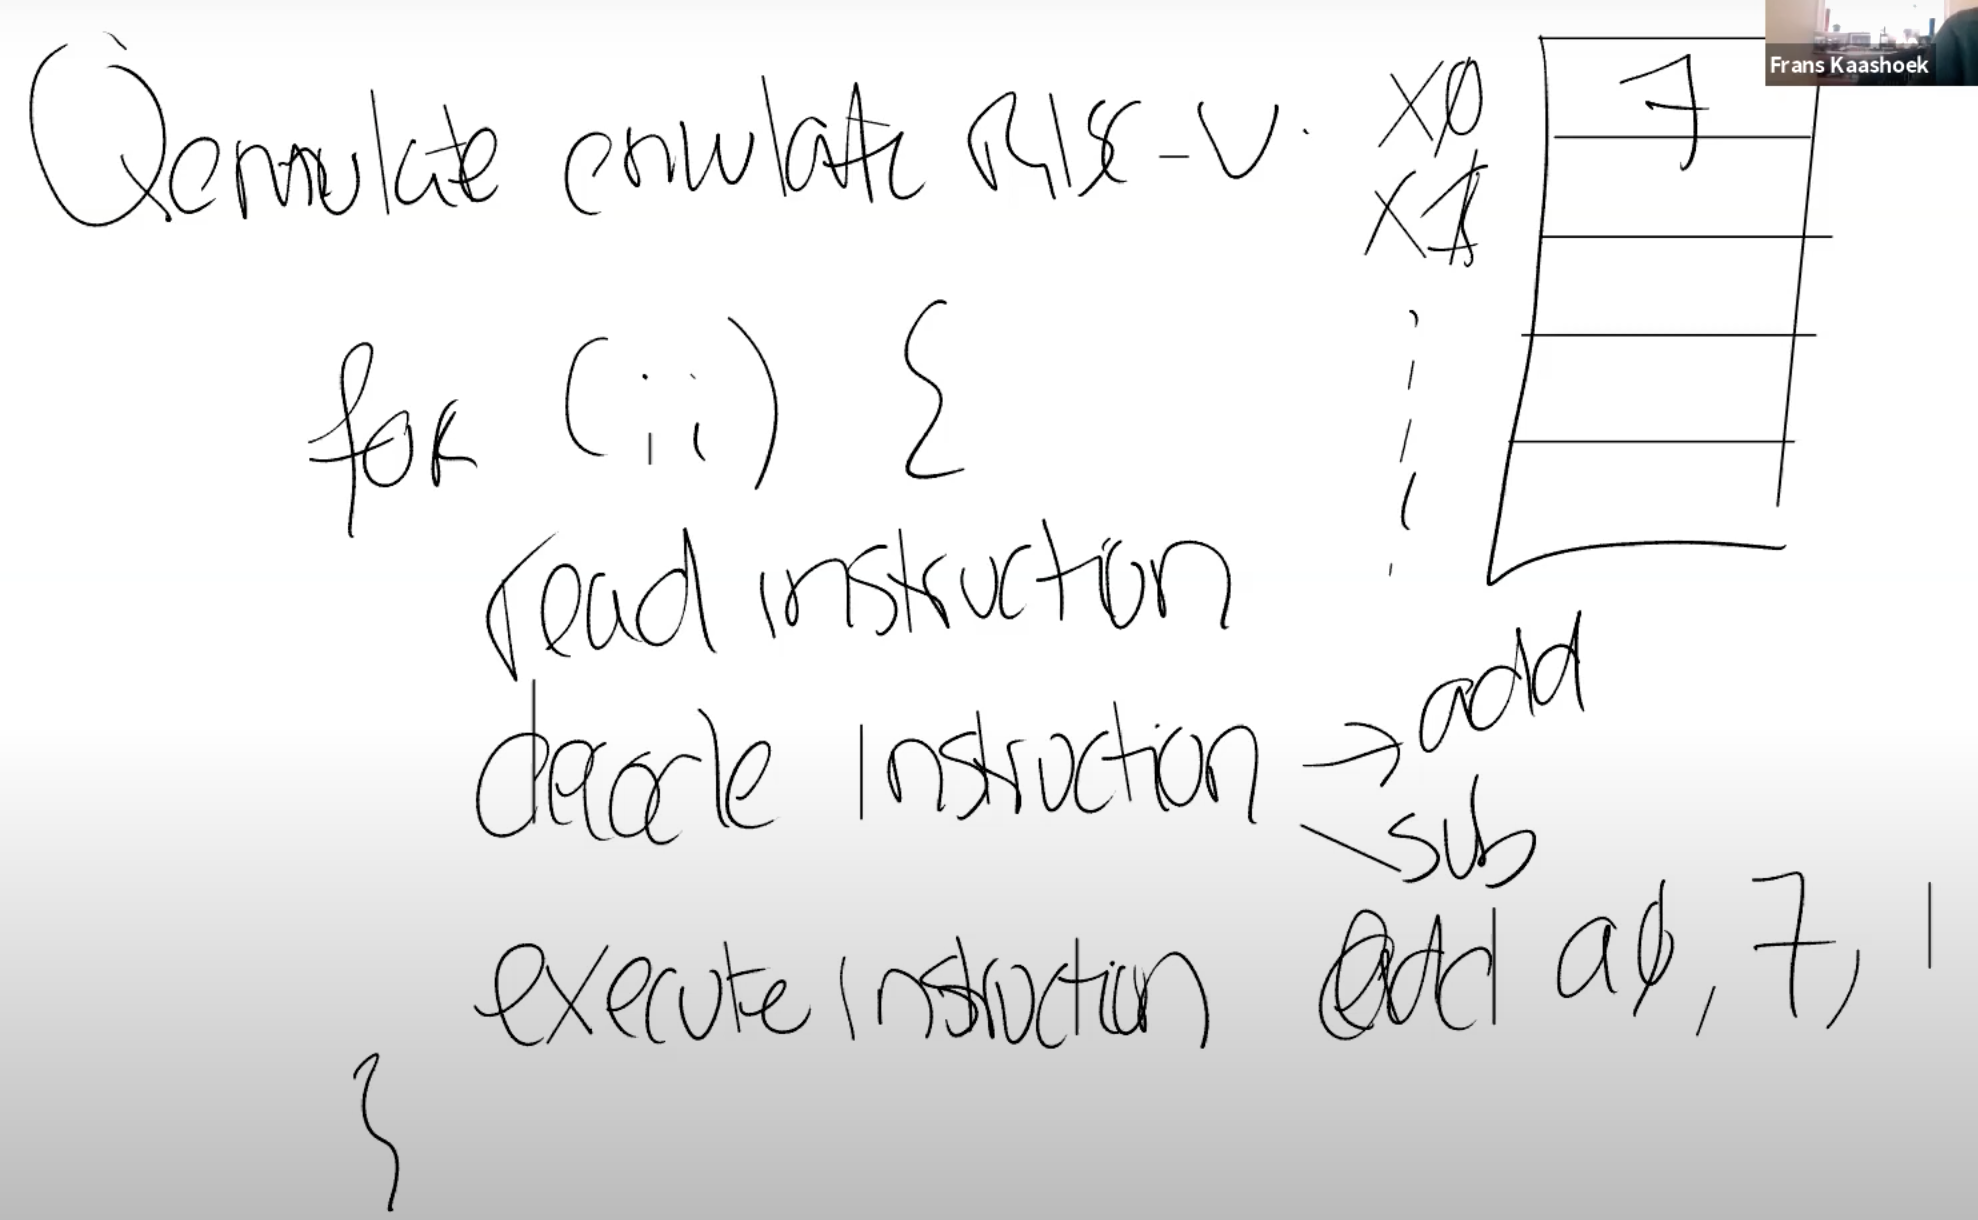 Qemulate emulate RISC-V.
Frans Kaashoek
x0
7
x1
for (;;) {
read instruction
decode instruction → add
sub
execute instruction add a0, 7, 1
}